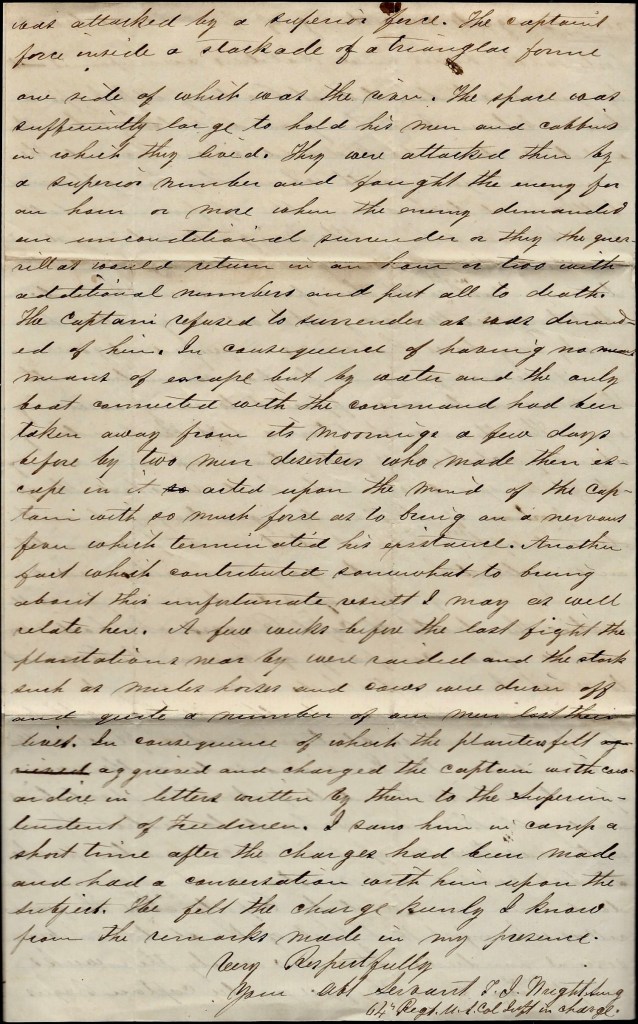 was attacked by a superior force. The captain's
force inside a stockade of a trianglar forme
one side of which was the river. The space was
sufficiently large to hold his men and cabbins
in which they lived. They were attacked then by
a superior number and fought the enemy for
an hour or more when the enemy demanded
an unconditional surrender or they the gue-
rillas would return in an hour or two with
additional numbers and put all to death.
The Captain refused to surrender as was demand-
ed of him. In consequence of having no means
means of escape but by water and the only
boat connected with the command had been
taken away from its moorings a few days
before by two men deserters who made their es-
cape in it so acted upon the mind of the Cap-
tain with so much force as to bring on a nervous
fever which terminated his existance. Another
fact which contributed somewhat to bring
about this unfortunate result I may as well
relate here. A few weeks before the last fight the
plantations near by were raided and the stock
such as mules horses and cows were driven off
and quite a number of our men lost their
lives. In consequence of which the planters felt
aggrieved and charged the Captain with cow-
ardice in letters written by them to the Superin-
tendent of Freedmen. I saw him in camp a
short time after the charges had been made
and had a conversation with him upon the
subject. He felt the charge keenly I know
from the remarks made in my presence.
Very Respectfully
Your Obt Servant T. J. Wright Surg
64th Regt. U.S. Col Infft in charge.